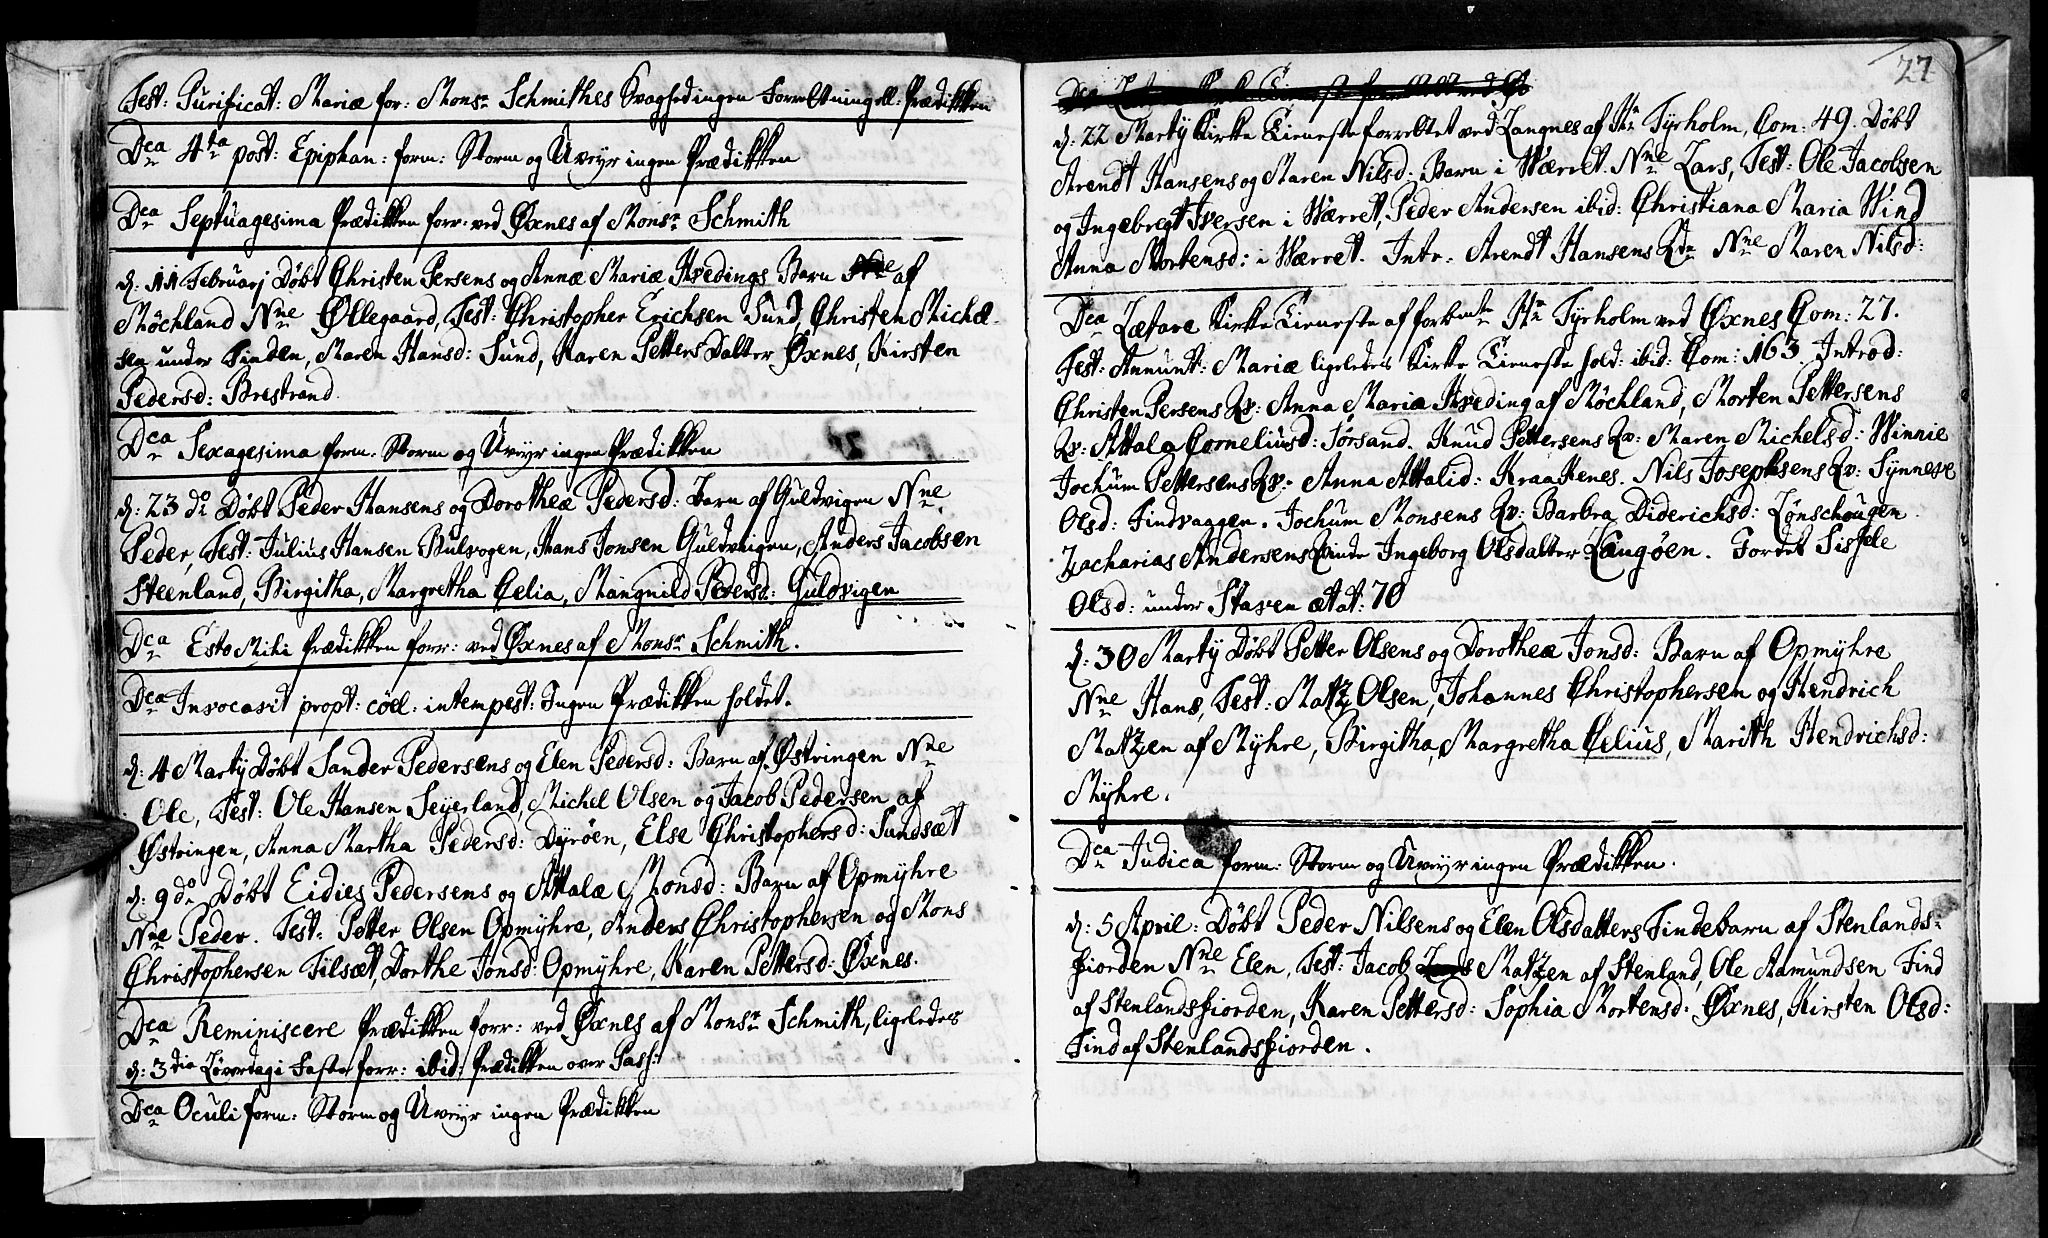 Fest: Purificat: Mariæ for: Monsr Schmithes Svaghed ingen Forretning ell: Prædikken
Dca 4ta post: Epiphan: form: Storm og Uveyr ingen Prædikken
Dca Septuagesima Prædikken forr: ved Øxnes af Monsr Schmith
d: 11 Februarj Døbt Christen Persens og Annæ Mariæ Hvedings Barn af
Möchland Nne Øllegaard, Test: Christopher Erichsen Sund, Christen Michel-
sen under Tinden, Maren Hansd: Sund, Karen Petters Datter Øxnes, Kirsten
Pedersd: Brestrand.
Dca Sexagesima form: Storm og Uveyr ingen Prædikken
d: 23 do Døbt Peder Hansens og Dorotheæ Pedersd: Barn af Guldvigen Nne
Peder, Test: Julius Hansen Bulvogen, Hans Jonsen Guldvigen, Anders Jacobsen
Steenland, Birgitha, Margretha Celia, Mangnild Pedersd: Guldvigen
Dca Esto Mihi Prædikken forr: ved Øxnes af Monsr Schmith.
Dca Invocavit propt: cöel: intempest: Ingen Prædikken holdet.
d: 4 Martij Døbt Sander Pedersens og Elen Pedersd: Barn af Østringen Nne
Ole, Test: Ole Hansen Seyerland, Michel Olsen og Jacob Pedersen af
Østringen, Anna Martha Pedersd: Dyröen, Else Christophersd: Sundsæt
d: 9 do Døbt Eidies Pedersens og Attalæ Monsd: Barn af Opmÿhre
Nne Peder. Test: Petter Olsen Opmÿhre, Anders Christophersen og Mons
Christophersen Tilsæt, Dorthe Jonsd: Opmÿhre, Karen Pettersd: Øxnes.
Dca Reminiscere Prædikken forr: ved Øxnes af Monsr Schmith, ligeledes
d: 3dia Löverdag i Faste forr: ibid: Prædikken over Pass:
Dca Oculi form: Storm og Uveyr ingen Prædikken
27
d: 22 Martij Kirke Tieneste forrettet ved Langnes af Hr Tyrholm, Com: 49. Døbt
Arendt Hansens og Maren Nilsd: Barn i Wærret. Nne Lars, Test: Ole Jacobsen
og Ingebregt Iversen i Wærret, Peder Andersen ibid: Christiana Maria Wind
Anna Mortensd: i Wærret. Intr: Arendt Hansens Qv: Nne Maren Nilsd:
Dca Lætare Kirke Tieneste af forbemte Hr Tyrholm ved Øxnes Com: 27.
Fest: Annunt: Mariæ ligeledes Kirke Tieneste hold: ibid: Com: 163 Introd:
Christen Persens Qv: Anna Maria Hveding af Möchland, Morten Pettersens
Qv: Attala Corneliusd: Sørsand. Knud Pettersens Qv: Maren Michelsd: Winnie
Jochum Pettersens Qv: Anna Attalid: Kraakenes. Nils Josephsens Qv: Synneve
Olsd: Findvaggen. Jochum Monsens Qv: Barbra Diderichsd: Lönschougen
Zacharias Andersens Qvinde Ingeborg Olsdatter Langöen. Jordet Sissele
Olsd: under Staven ætat: 70
d: 30 Martij Døbt Petter Olsens og Dorotheæ Jonsd: Barn af Opmÿhre
Nne Hans, Test: Matz Olsen, Johannes Christophersen og Hendrich
Matzen af Mÿhre, Birgitha, Margretha Celius, Marith Hendrichsd:
Mÿhre.
Dca Judica form: Storm og Uveyr ingen Prædikken.
d: 5 April: Døbt Peder Nilsens og Elen Olsdatters Findebarn af Stenlands-
fiorden Nne Elen, Test: Jacob Matzen af Stenland, Ole Aamundsen Find
af Stenlandsfiorden, Karen Pettersd: Sophia Mortensd: Øxnes, Kirsten Olsd:
Find af Stenlandsfiorden.